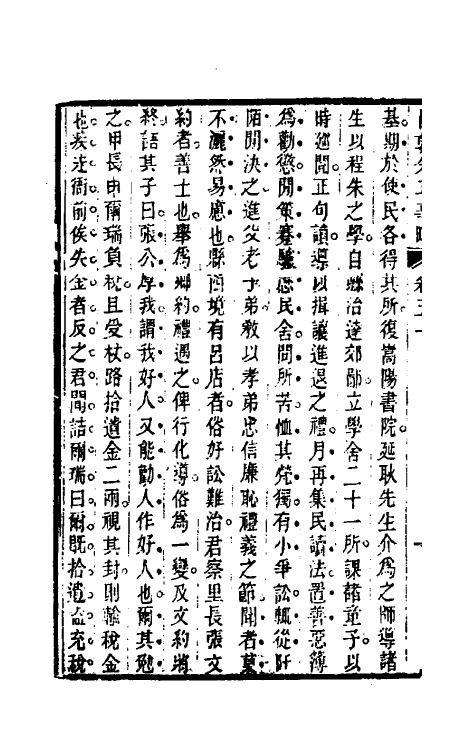 基期於使民各得其所復嵩陽書院延耿先生介為之師導諸
生以程朱之學自縣治達郊鄙立學舍二十一所課諸童子以
時廵閲正句讀導以揖讓進退之禮月再集民讀法置善惡簿
為勸懲閒策蹇驢慰民舍問所苦恤其煢獨有小爭訟輒從阡
陌間決之進父老子弟敎以孝弟忠信廉恥禮義之節聞者莫
不灑然易慮也縣西境有呂店者俗好訟難治君察里長張文
約者善士也舉為鄉約禮遇之俾行化導俗為一變及文約將
終語其子曰張公厚我謂我好人又能勸人作好人也爾其勉
之甲長申爾瑞負杖且受杖路拾遺金二兩視其封則輸稅金
也疾走衙前俟失金者反之君聞詰爾瑞曰爾既拾遺盍充稅